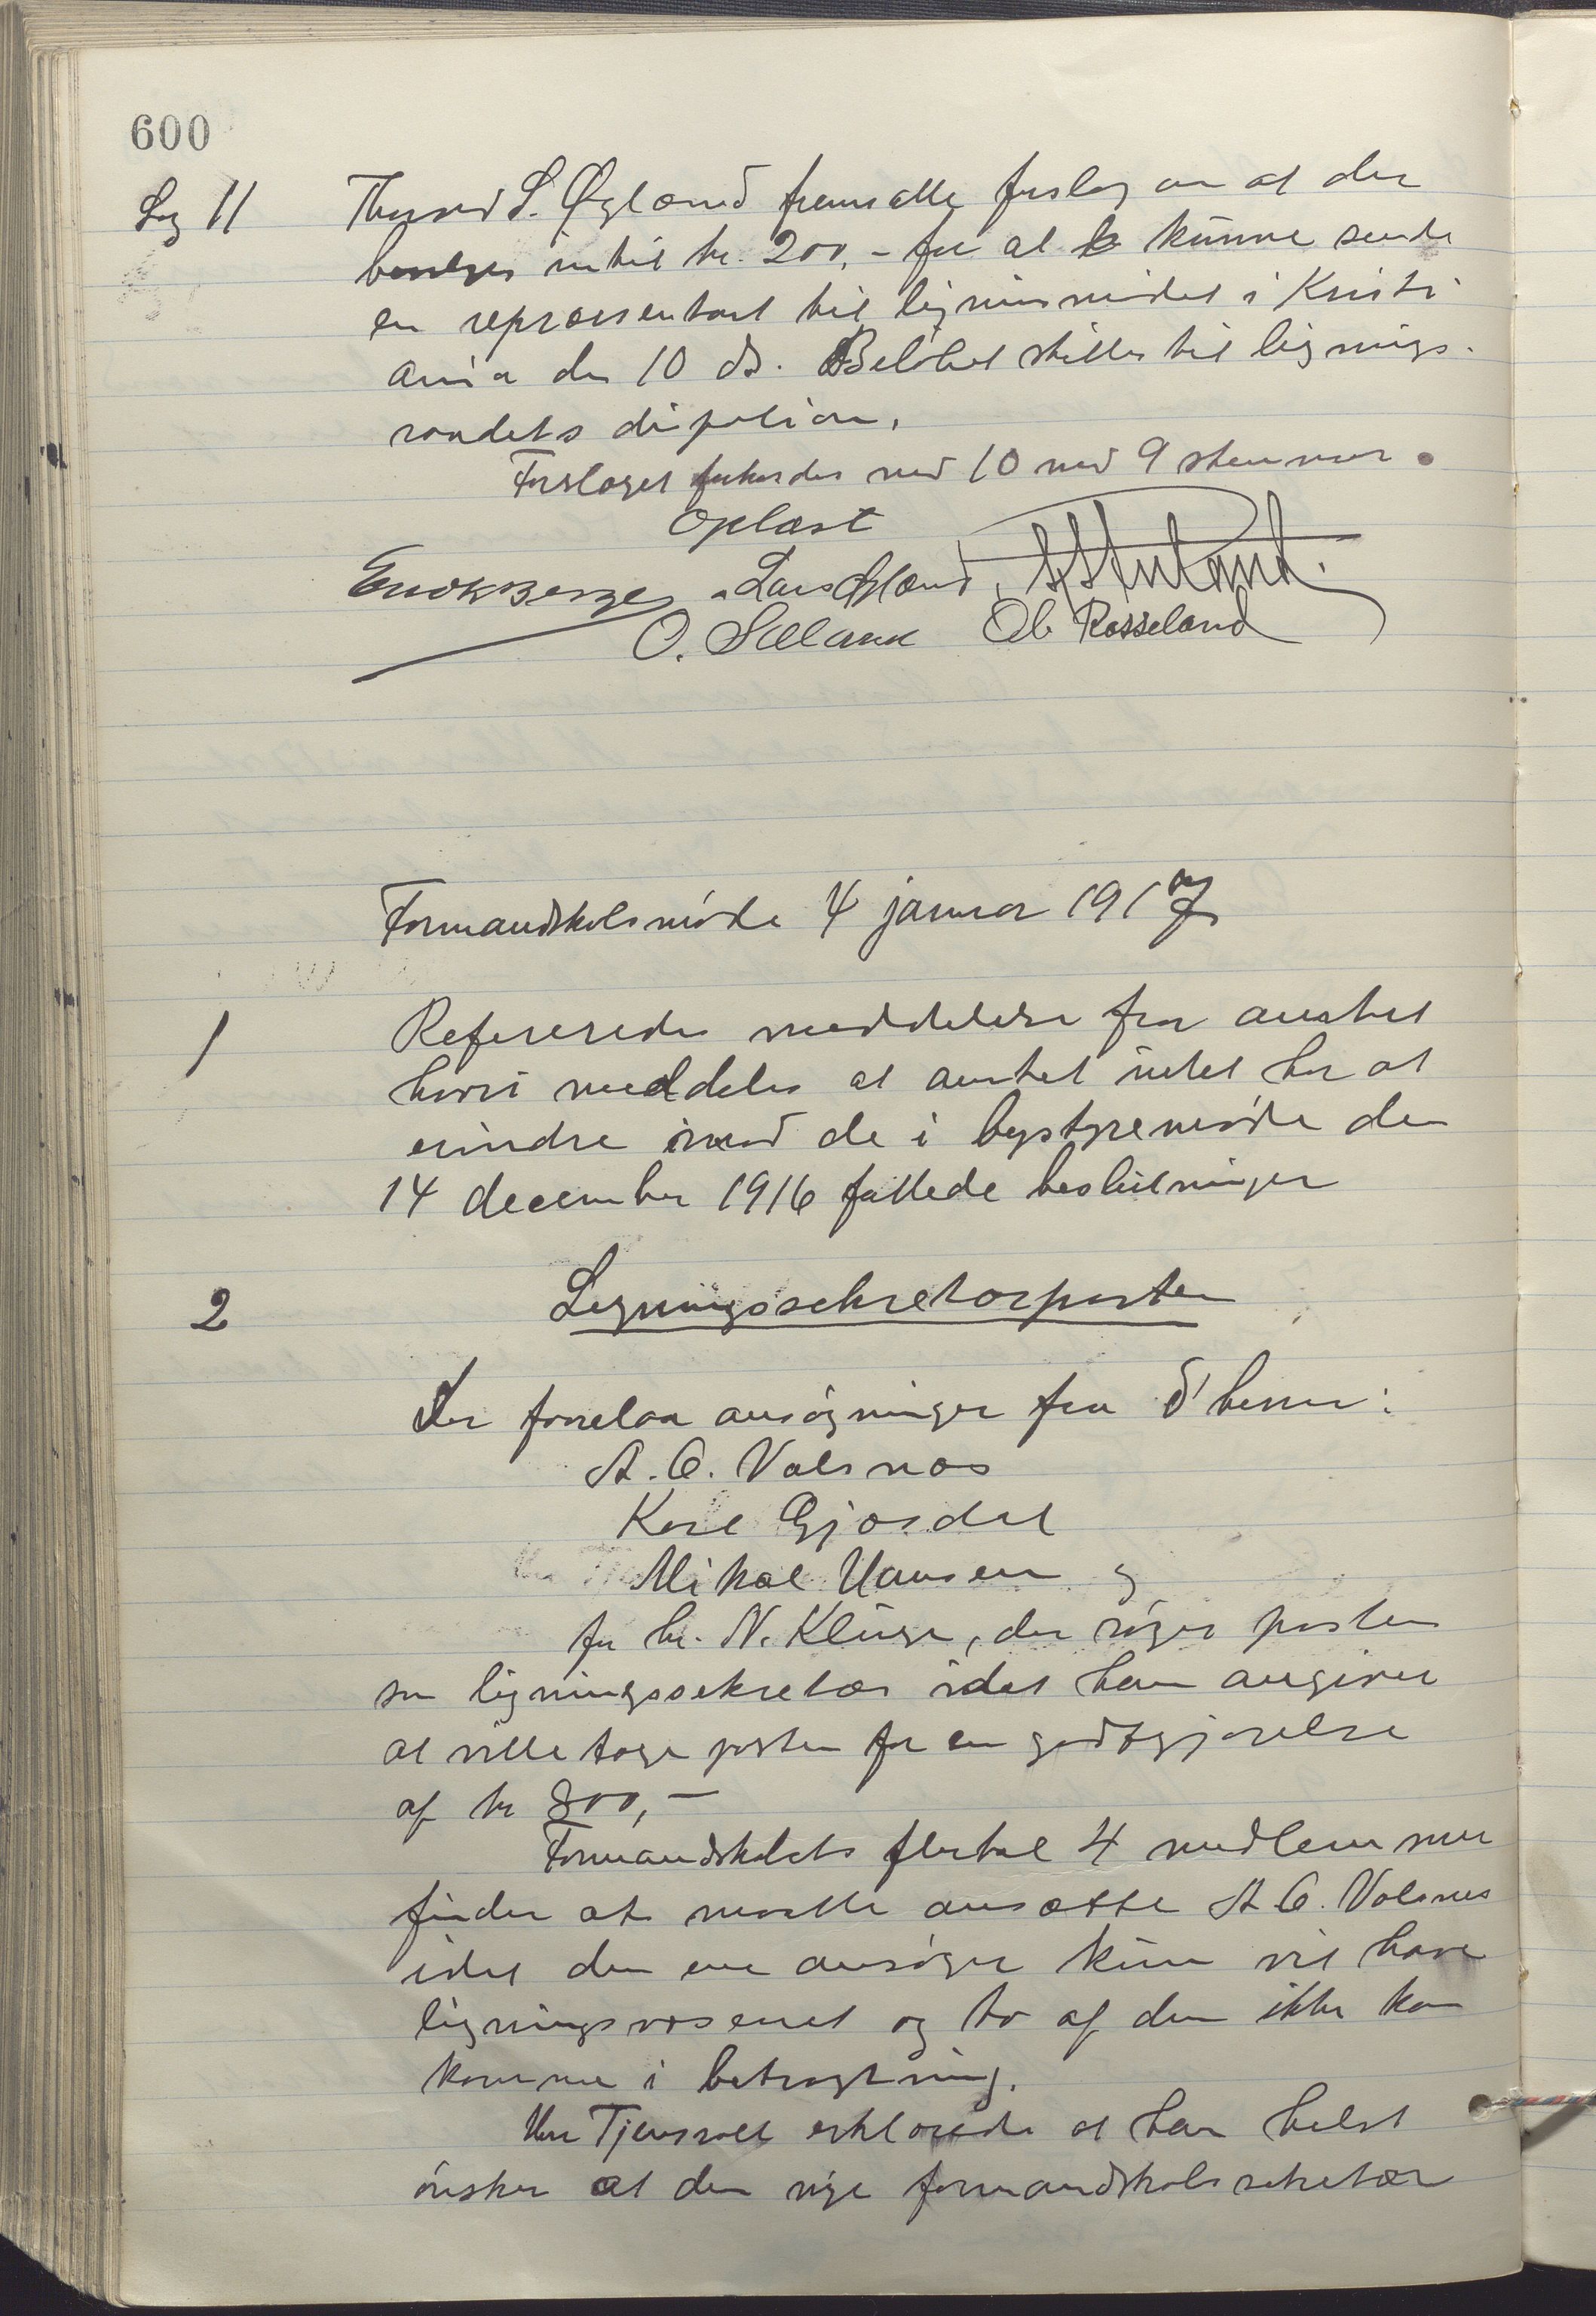 600
Sag 11 Thorvald S. Øglænd fremsatte forslag om at der
bevilges indtil kr. 200,- for at kunne sende
en repræsentant til ligningsmødet i Kristi
ania den 10 ds. Beløbet stilles til lignings-
raadets disposion.
Forslaget forkastedes med 10 mod 9 stemmer.
Oplæst
Enok Berge Lars Øglænd
O. Sælland Ob. Rosseland
Formandskabsmøde 4 januar 1917
1 Refereredes meddelelse fra amtet
hvori meddeles at amtet intet har at
erindre imod de i bystyremøde den
14 december 1916 fattede beslutninger
2 Ligningssekretærposten
Der forelaa ansøgninger fra d'herrer:
A. C. Valsnæs
Karl Gjøsdal
Mikal Hansen og
fra hr. N. Kluge, der søger posten
som ligningssekretær idet han angiver
at ville tage posten for en godtgjørelse
af kr 800,-
Formandskabets flertal 4 medlemmer
finder at maatte ansætte A. C. Valsnes
idet den ene ansøger kun vil have
ligningsvæsenet og to af dem ikke kan
komme i betragtning.
Herr Tjensvoll erklærede at han helst
ønsker at den nye formandskabssekretær